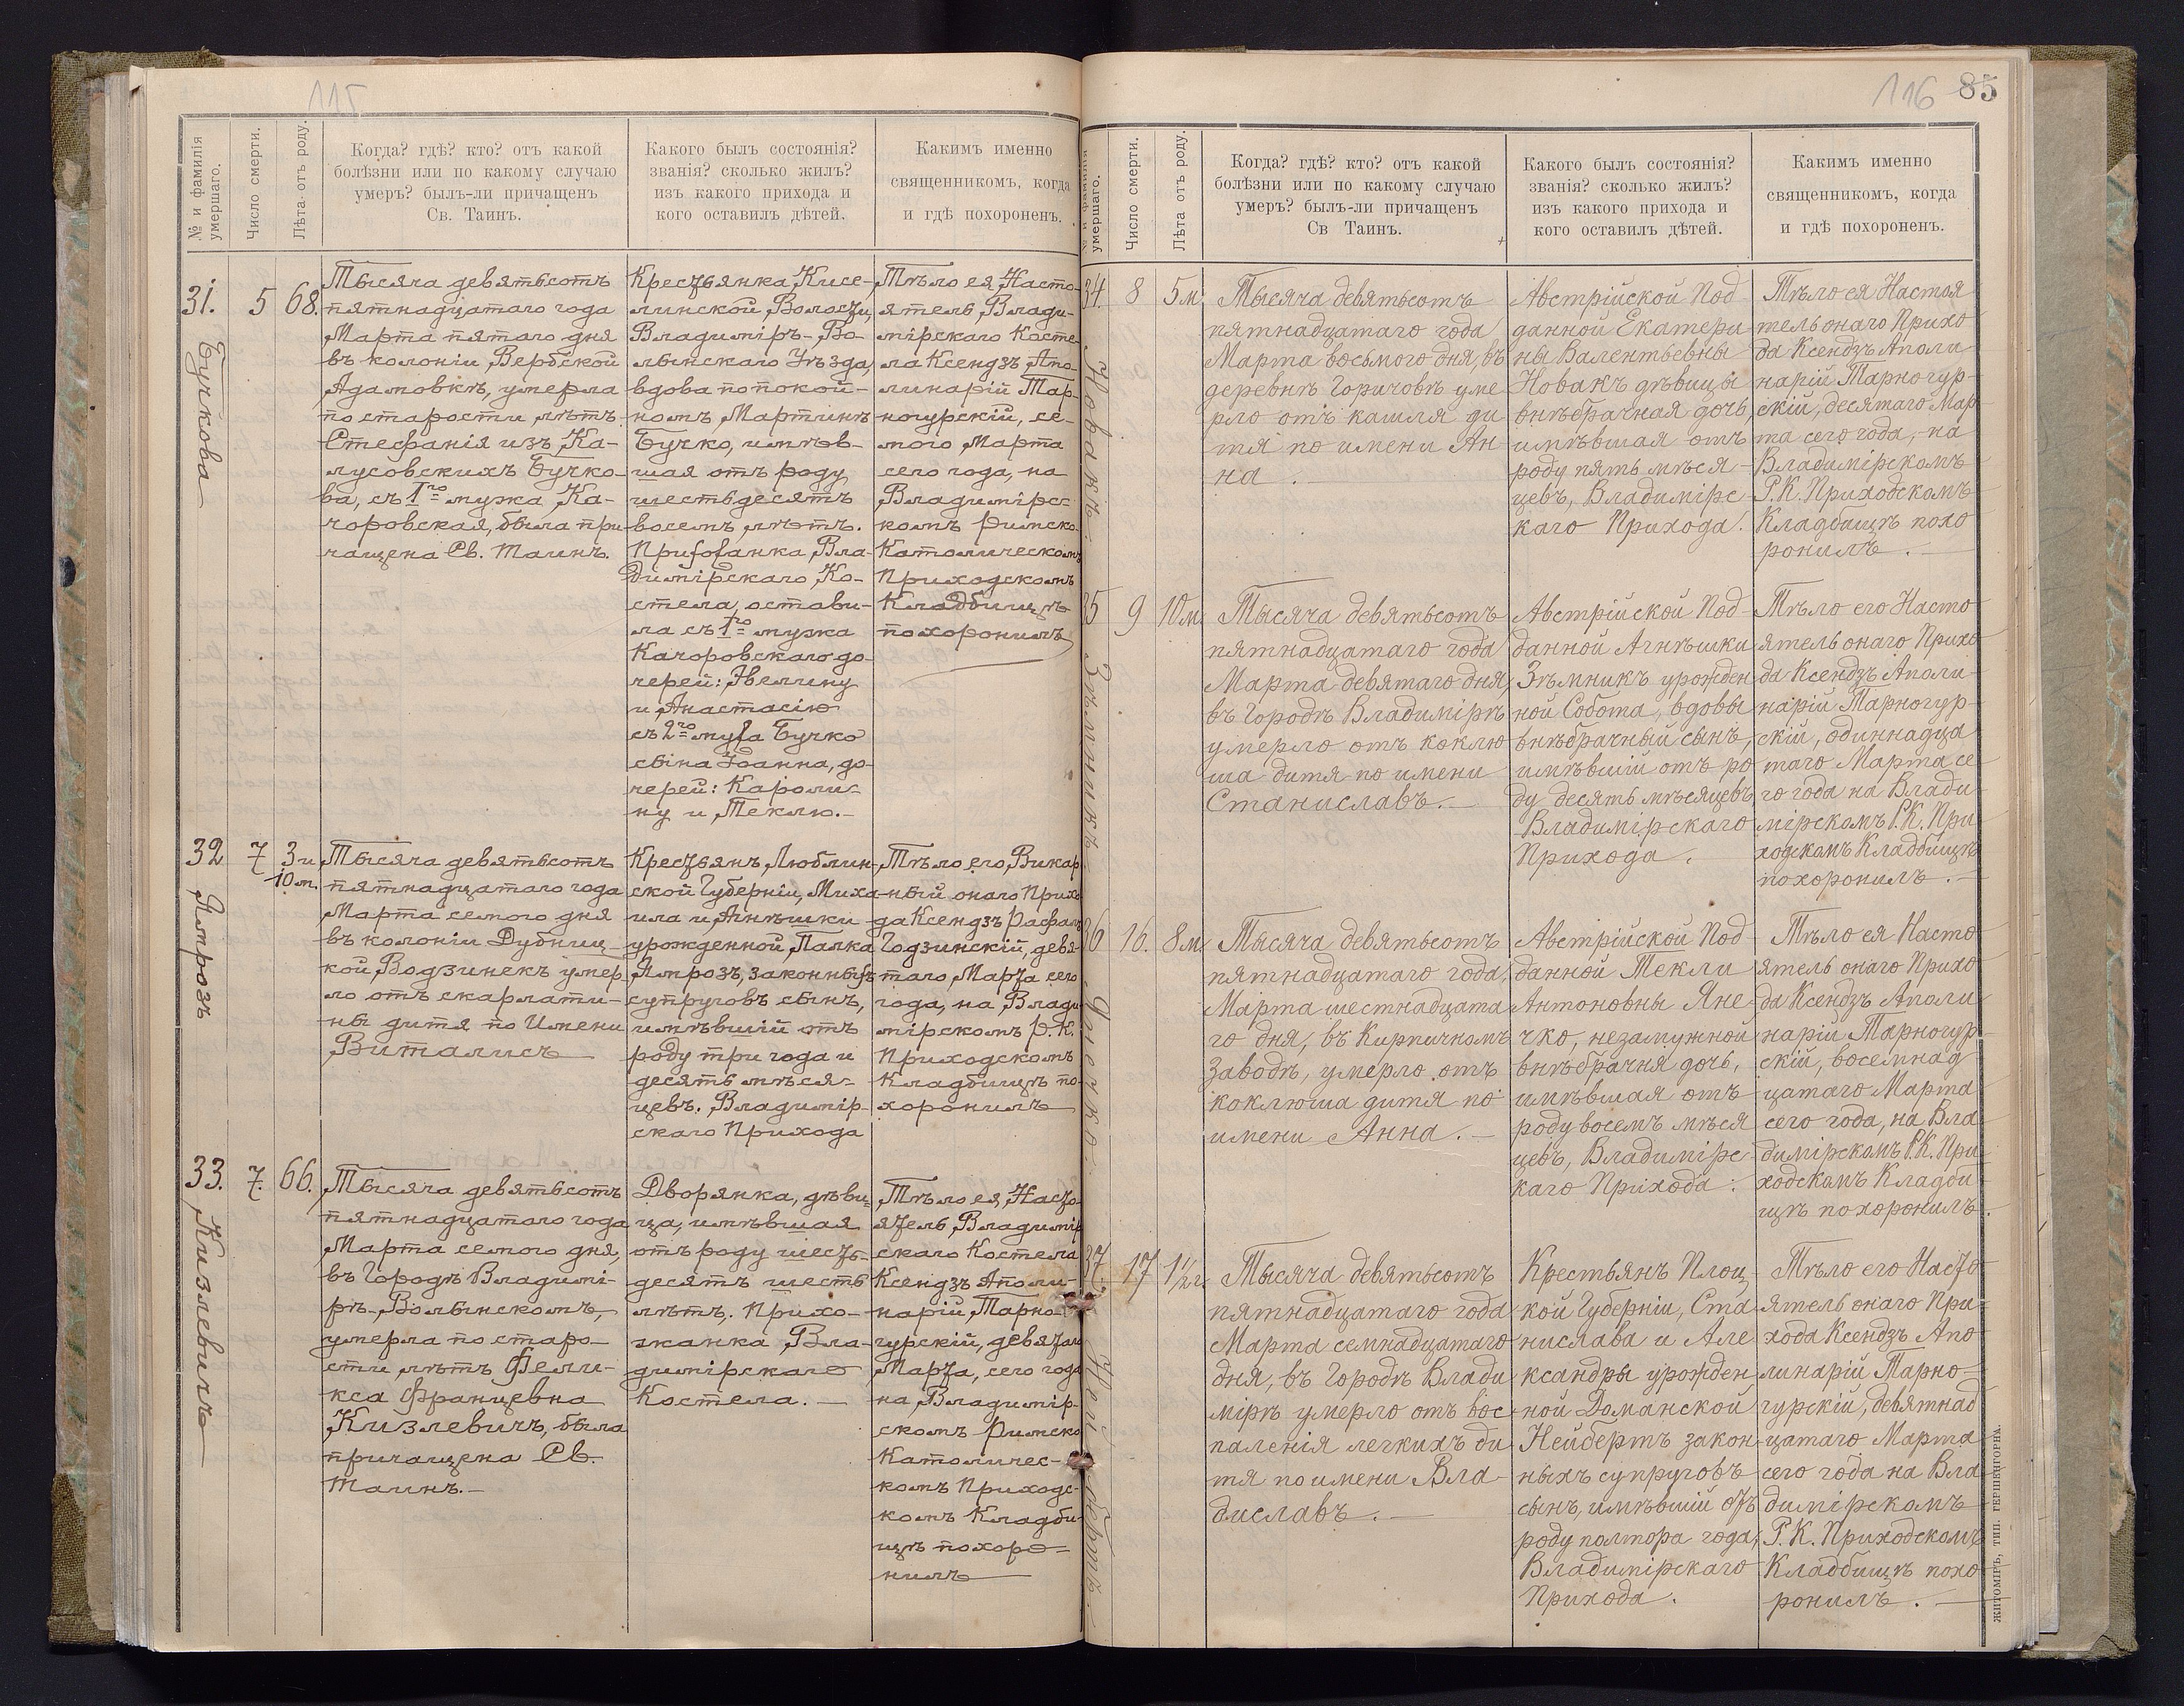 115
№ и фамилія умершаго.
Число смерти.
Лѣта отъ роду.
Когда? гдѣ? кто? отъ какой
болѣзни или по какому случаю
умеръ? былъ-ли причащенъ
Св. Таинъ.
Какого былъ состоянія?
званія? сколько жилъ?
изъ какого прихода и
кого оставилъ дѣтей.
Какимъ именно
священникомъ, когда
и гдѣ похороненъ.
31.
Бучкова
5
68.
Тысяча девятьсотъ
пятнадцатаго года
Марта пятаго дня
въ колоніи Вербской
Адамовкѣ, умерла
по старости лѣтъ
Стефанія изъ Ка-
лусовскихъ Бучко-
ва, съ 1го мужа Ка-
чоровская, была при-
чащена Св. Таинъ.
Крестьянка Кисе-
линской Волости,
Владиміръ-Во-
лынскаго Уѣзда,
вдова по покой-
номъ Мартинѣ
Бучко, имѣв-
шая отъ роду
шестьдесятъ
восемъ лѣтъ.
Прихожанка Вла-
димірскаго Ко-
стела, остави-
ла съ 1го мужа
Качоровскаго до-
черей: Эвелину
и Анастасію
съ 2го мужа Бучко
сына Іоанна, до-
черей: Кароли-
ну и Теклю.-
Тѣло ея, Насто-
ятель Влади-
мірскаго Косте-
ла Ксендзъ Апо-
линарій Тар-
ногурскій, се-
мого Марта
сего года, на
Владимірс-
комъ Римско-
Католическомъ
Приходскомъ
Кладбищѣ
похоронилъ
32
Ямрозъ
7
3 и
10 м.
Тысяча девятьсотъ
пятнадцатаго года
Марта семого дня
въ колоніи Дубниц-
кой, Водзинекъ умер-
ло отъ скарлати-
ны дитя по Имени
Виталисъ
Крестьянъ Люблин-
ской Губерніи, Миха-
ила и Агнѣшки
урожденной Палка
Ямрозъ, законныхъ
супруговъ сынъ,
имѣвшій отъ
роду три года и
десять мѣся-
цевъ. Владимір-
скаго Прихода
Тѣло его, Викар-
ный онаго Прихо-
да Ксендзъ Рафалъ
Годзинскій, девя-
таго, Марта сего
года, на Влади-
мірскомъ Р. К.
Приходскомъ
Кладбищѣ по-
хоронилъ
33.
Кизлевичъ
7.
66.
Тысяча девятьсотъ
пятнадцатаго года
Марта семого дня,
въ Городѣ Владимі-
рѣ-Волынскомъ,
умерла по старо-
сти лѣтъ Фели-
кса Францевна
Кизлевичъ, была
причащена Св.
Таинъ.-
Дворянка, дѣви-
ца, имѣвшая
отъ роду шесть-
десятъ шесть
лѣтъ. Прихо-
жанка Вла-
димірскаго
Костела.-
Тѣло ея, Насто-
ятель Владимір-
скаго Костела
Ксендзъ Аполи-
нарій Тарно-
гурскій, девятаго
Марта, сего года
на Владимір-
скомъ Римско
Католичес-
комъ Приходс-
комъ Кладби-
щѣ похоро-
нилъ
116 85
№ и фамилія умершаго.
Число смерти.
Лѣта отъ роду.
Когда? гдѣ? кто? отъ какой
болѣзни или по какому случаю
умеръ? былъ-ли причащенъ
Св Таинъ.
Какого былъ состоянія?
званія? сколько жилъ?
изъ какого прихода и
кого оставилъ дѣтей.
Какимъ именно
священникомъ, когда
и гдѣ похороненъ.
34.
Новакъ.
8
5 м
Тысяча девятьсотъ
пятнадцатаго года
Марта восьмого дня, въ
деревнѣ Горичовѣ уме
рло отъ кашля ди
тя по имени Ан-
на.-
Австрійской Под-
данной Екатери
ны Валентьевны
Новакъ дѣвицы
внѣбрачная дочь
имѣвшая отъ
роду пять мѣся-
цевъ, Владимірс-
каго Прихода.
Тѣло ея Настоя
тель онаго Прихо
да Ксендзъ Аполи-
нарій Тарногур-
скій, десятаго Мар
та сего года, на
Владимірскомъ
Р.К. Приходскомъ
Кладбищѣ похо
ронилъ.-
35
Зѣмникъ
9
10 м
Тысяча девятьсотъ
пятнадцатаго года
Марта девятаго дня,
въ Городѣ Владимірѣ
умерло отъ коклю
ша дитя по имени
Станиславъ.-
Австрійской Под-
данной Агнѣшки
Зѣмникъ урожден
ной Собота, вдовы
внѣбрачный сынъ,
имѣвшій отъ ро
ду десять мѣсяцевъ
Владимірскаго
Прихода.
Тѣло его Насто
ятель онаго Прихо
да Ксендзъ Аполи-
нарій Тарногур-
скій, одиннадца
таго Марта се
го года на Влади
мірскомъ Р.К. При
ходскомъ Кладбищѣ
похоронилъ.-
36
Янечко.
16.
8 м
Тысяча девятьсотъ
пятнадцатаго года,
Марта шестнадцата
го дня, въ Кирпичномъ
Заводѣ, умерло отъ
коклюша дитя по
имени Анна.-
Австрійской Под-
данной Текли
Антоновны Яне-
чко, незамужной
внѣбрачня дочь,
имѣвшая отъ
роду восемъ мѣся
цевъ, Владимірс-
каго Прихода.
Тѣло ея Насто
ятель онаго Прихо
да Ксендзъ Аполи
нарій Тарногур-
скій, восемнад
цатаго Марта
сего года, на Вла
димірскомъ Р.К. При
ходскомъ Кладби
щѣ похоронилъ.
37.
Нейбертъ.-
17
1½ г.
Тысяча девятьсотъ
пятнадцатаго года
Марта семнадцатаго
дня, въ Городѣ Влади
мірѣ умерло отъ вос-
паленія легкихъ ди
тя по имени Вла-
диславъ.-
Крестьянъ Плоц-
кой Губерніи, Ста
нислава и Але
ксандры урожден
ной Доманской
Нейбертъ закон-
ныхъ супруговъ
сынъ, имѣвшій отъ
роду полтора года,
Владимірскаго
Прихода.
Тѣло его Насто
ятель онаго При-
хода Ксендзъ Апо
линарій Тарно-
гурскій, девятнад
цатаго Марта
сего года на Вла
димірскомъ
Р. К. Приходскомъ
Кладбищѣ похо
ронилъ.-
ЖИТОМІРЪ, ТИП. ГЕРШЕНГОРНА.